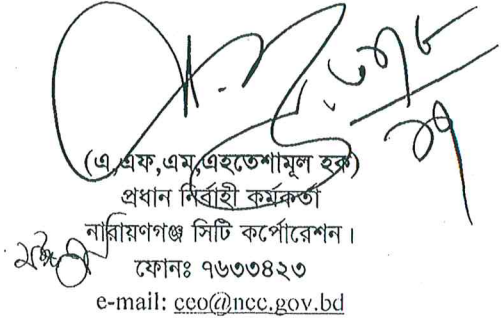 (এ,এফ,এম,এহতেশামূল হক)
প্রধান নির্বাহী কর্মকর্তা
নারায়ণগঞ্জ সিটি কর্পোরেশন।
ফোনঃ ৭৬৩৩৪২৩
e-mail: ceo@ncc.gov.bd